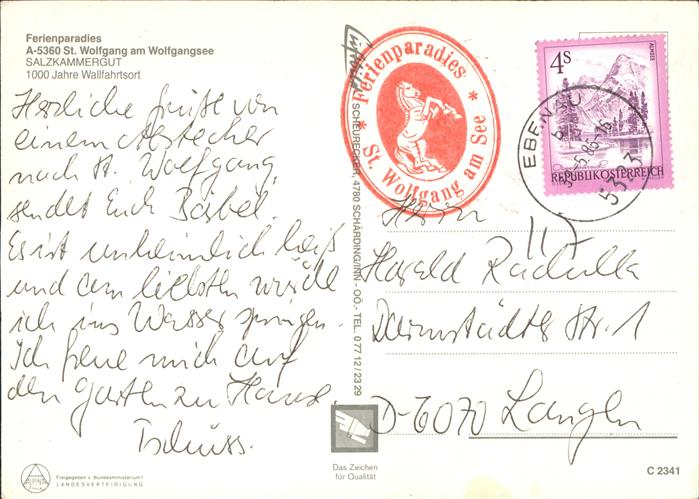 Ferienparadies
A-5360 St. Wolfgang am Wolfgangsee
SALZKAMMERGUT
1000 Jahre Wallfahrtsort
Herzliche Grüße von
einem Abstecher
nach St. Wolfgang,
sendet Euch Bärbel.
Es ist unheimlich heiß
und am liebsten würde
ich ins Wasser springen.
Ich freue mich auf
den Garten zu Hause.
Tschüss.
Freigegeben v. Bundesministerium f.
LANDESVERTEIDIGUNG
ALPINA
SCHEURECKER, 4780 SCHÄRDING/INN - OÖ.- TEL. 0 77 12 / 23 29
Das Zeichen
für Qualität
* Ferienparadies *
St. Wolfgang am See
4S
ALMSEE
REPUBLIK ÖSTERREICH
EBEN
Herrn
Harald Radulla
Darmstädter Str. 1
D-6070 Langen
C 2341